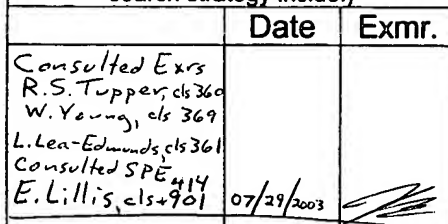 search strategy include.)
Date Exmr.
Consulted Exrs
R.S. Tupper, cls 360
W. Young, cls 369
L. Lea-Edmunds, cls 361
Consulted SPE
E. Lillis, cls 414 + 901 07/29/2003